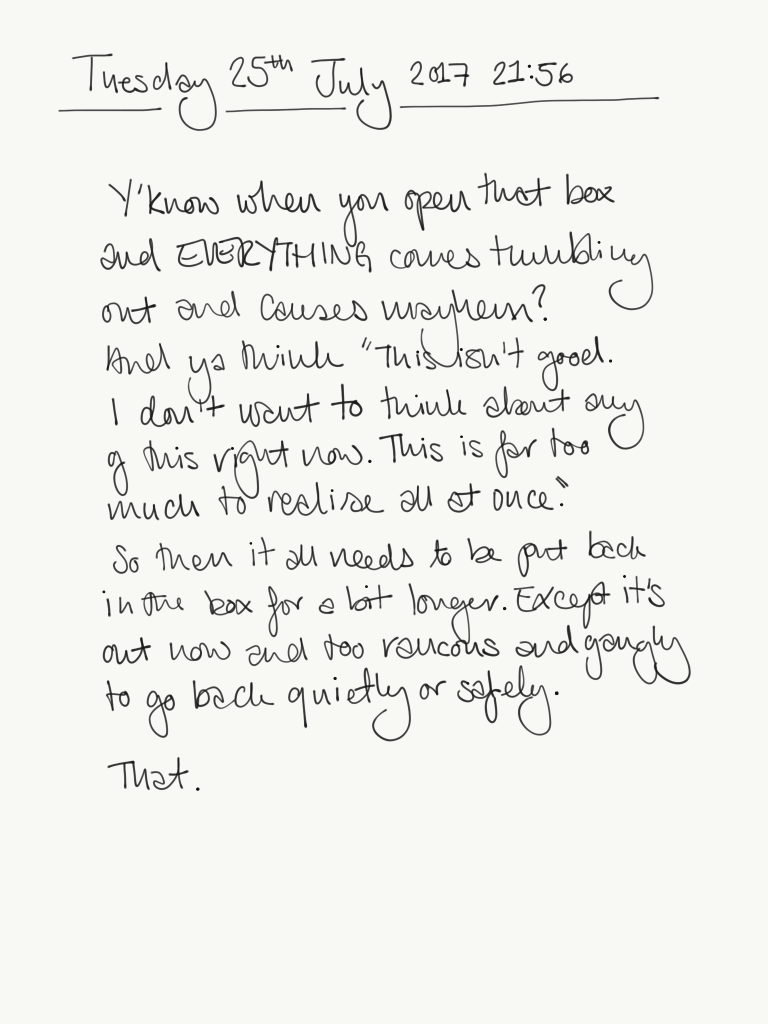 Tuesday 25th July 2017 21:56
Y'know when you open that box
and EVERYTHING comes tumbling
out and causes mayhem?
And ya think "This isn't good.
I don't want to think about any
of this right now. This is far too
much to realise all at once."
So then it all needs to be put back
in the box for a bit longer. Except it's
out now and too raucous and gangly
to go back quietly or safely.
That.